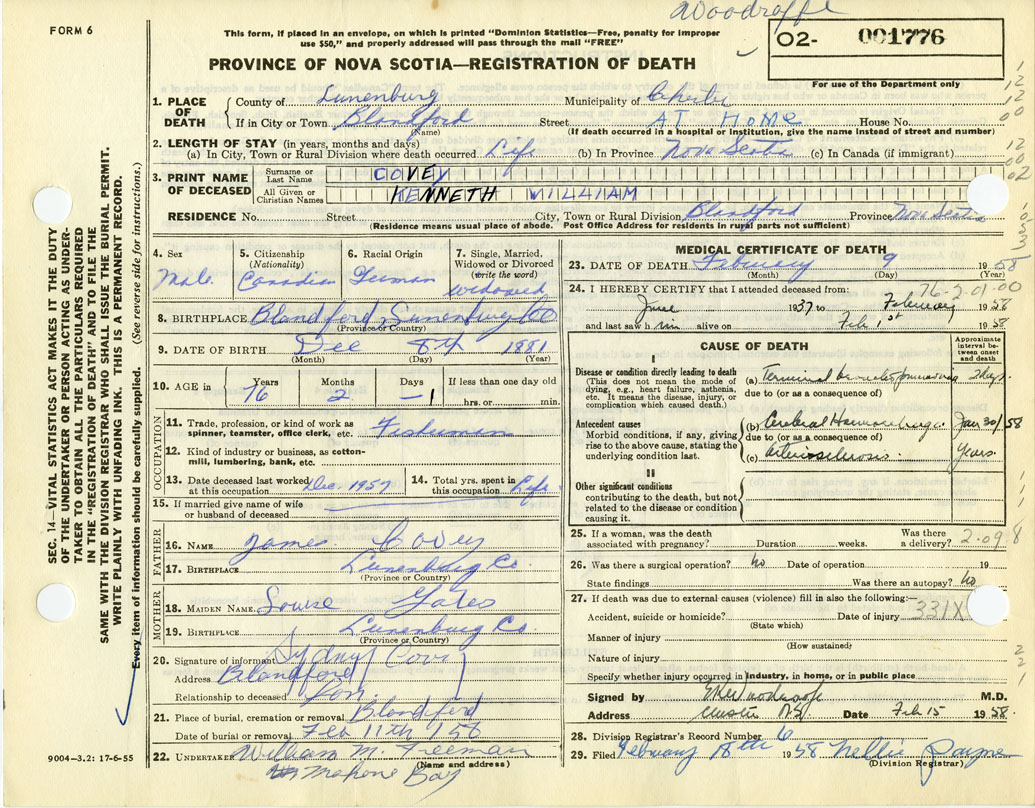 Woodroffe
FORM 6
This form, if placed in an envelope, on which is printed "Dominion Statistics—Free, penalty for improper
use $50," and properly addressed will pass through the mail "FREE"
02- 001776
For use of the Department only
PROVINCE OF NOVA SCOTIA—REGISTRATION OF DEATH
1. PLACE OF DEATH County of Lunenburg Municipality of Chester
If in City or Town Blandford Street AT HOME House No.
(Name) (If death occurred in a hospital or institution, give the name instead of street and number)
2. LENGTH OF STAY (in years, months and days)
(a) In City, Town or Rural Division where death occurred Life (b) In Province Nova Scotia (c) In Canada (if immigrant)
3. PRINT NAME OF DECEASED Surname or Last Name COVEY
All Given or Christian Names KENNETH WILLIAM
RESIDENCE No. Street City, Town or Rural Division Blandford Province Nova Scotia
(Residence means usual place of abode. Post Office Address for residents in rural parts not sufficient)
4. Sex 5. Citizenship (Nationality) 6. Racial Origin 7. Single, Married, Widowed or Divorced (write the word)
Male Canadian German widowed
8. BIRTHPLACE Blandford, Lunenburg Co
(Province or Country)
9. DATE OF BIRTH Dec 8th 1881
(Month) (Day) (Year)
10. AGE in Years Months Days If less than one day old
76 2 1 hrs. or min.
OCCUPATION
11. Trade, profession, or kind of work as spinner, teamster, office clerk, etc. Fisherman
12. Kind of industry or business, as cotton-mill, lumbering, bank, etc.
13. Date deceased last worked at this occupation Dec. 1957 14. Total yrs. spent in this occupation Life
15. If married give name of wife or husband of deceased
FATHER
16. NAME James Covey
17. BIRTHPLACE Lunenburg Co.
(Province or Country)
MOTHER
18. MAIDEN NAME Louise Gates
19. BIRTHPLACE Lunenburg Co.
(Province or Country)
20. Signature of informant Sydney
Address Blandford
Relationship to deceased Son
21. Place of burial, cremation or removal Blandford
Date of burial or removal Feb 11th 1958
22. UNDERTAKER William M. Freeman
(Name and address)
Mahone Bay
9004—3.2: 17-6-55
MEDICAL CERTIFICATE OF DEATH
23. DATE OF DEATH February 9 1958
(Month) (Day) (Year)
76-2-01-00
24. I HEREBY CERTIFY that I attended deceased from:
June 1937 to February 1958
and last saw him alive on Feb 1st 1958
CAUSE OF DEATH
Approximate interval between onset and death
I
Disease or condition directly leading to death
(This does not mean the mode of dying, e.g., heart failure, asthenia, etc. It means the disease, injury, or complication which caused death.)
(a) Terminal bronchopneumonia 2 days.
due to (or as a consequence of)
Antecedent causes
Morbid conditions, if any, giving rise to the above cause, stating the underlying condition last.
(b) Cerebral Haemorrhage. Jan 30/58
due to (or as a consequence of)
(c) Arteriosclerosis. Years.
II
Other significant conditions
contributing to the death, but not related to the disease or condition causing it.
25. If a woman, was the death associated with pregnancy? Duration weeks. Was there a delivery?
2.098
26. Was there a surgical operation? No Date of operation 19
State findings Was there an autopsy? No
27. If death was due to external causes (violence) fill in also the following:—
Accident, suicide or homicide? Date of injury 331X
(State which)
Manner of injury
(How sustained)
Nature of injury
Specify whether injury occurred in industry, in home, or in public place
Signed by Woodroofe M.D.
Address Chester N.S. Date Feb 15 1958.
28. Division Registrar's Record Number 6
29. Filed February 18th 1958 Nellie Payne
(Division Registrar)
SEC. 14—VITAL STATISTICS ACT MAKES IT THE DUTY
OF THE UNDERTAKER OR PERSON ACTING AS UNDER-
TAKER TO OBTAIN ALL THE PARTICULARS REQUIRED
IN THE "REGISTRATION OF DEATH" AND TO FILE THE
SAME WITH THE DIVISION REGISTRAR WHO SHALL ISSUE THE BURIAL PERMIT.
WRITE PLAINLY WITH UNFADING INK. THIS IS A PERMANENT RECORD.
Every item of information should be carefully supplied. (See reverse side for instructions.)